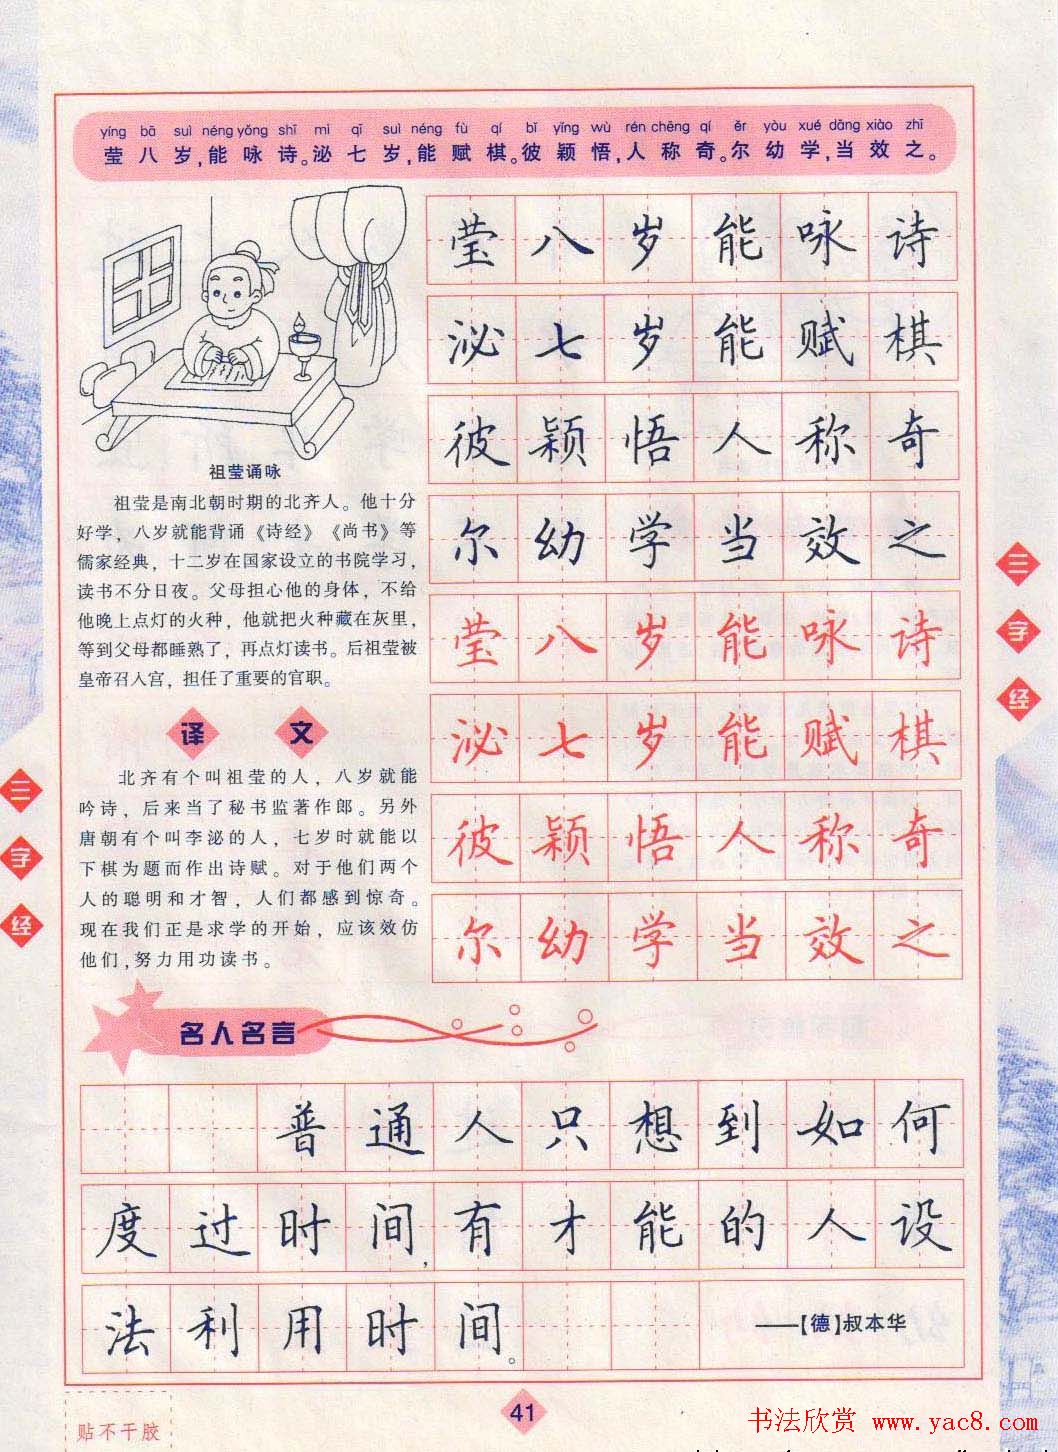 yíng bā suì néng yǒng shī mì qī suì néng fù qí bǐ yǐng wù rén chēng qí ěr yòu xué dāng xiào zhī
莹八岁,能咏诗。泌七岁,能赋棋。彼颖悟,人称奇。尔幼学,当效之。
莹八岁能咏诗
泌七岁能赋棋
彼颖悟人称奇
尔幼学当效之
莹八岁能咏诗
泌七岁能赋棋
彼颖悟人称奇
尔幼学当效之
祖莹诵咏
祖莹是南北朝时期的北齐人。他十分
好学，八岁就能背诵《诗经》《尚书》等
儒家经典，十二岁在国家设立的书院学习，
读书不分日夜。父母担心他的身体，不给
他晚上点灯的火种，他就把火种藏在灰里，
等到父母都睡熟了，再点灯读书。后祖莹被
皇帝召入宫，担任了重要的官职。
译文
北齐有个叫祖莹的人，八岁就能
吟诗，后来当了秘书监著作郎。另外
唐朝有个叫李泌的人，七岁时就能以
下棋为题而作出诗赋。对于他们两个
人的聪明和才智，人们都感到惊奇。
现在我们正是求学的开始，应该效仿
他们,努力用功读书。
三字经
三字经
名人名言
普通人只想到如何
度过时间,有才能的人设
法利用时间。
——【德】叔本华
41
贴不干胶
书法欣赏 www.yac8.com